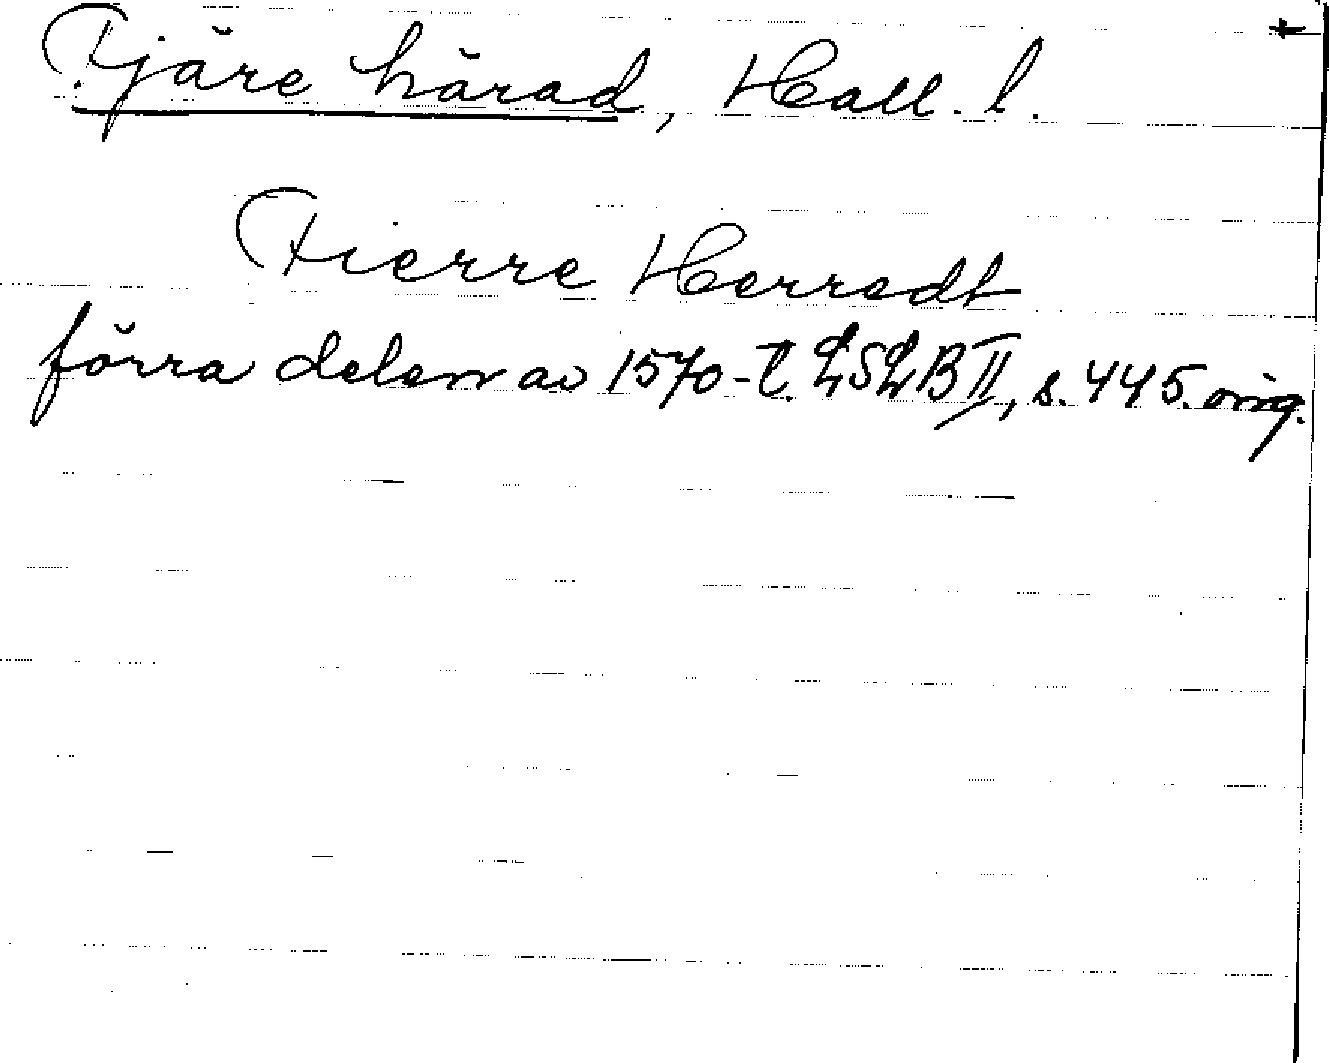 Fjäre härad, Hall. l.
Fierre Herredt
förra delen av 1570-t. LSLB II, s. 445. orig.